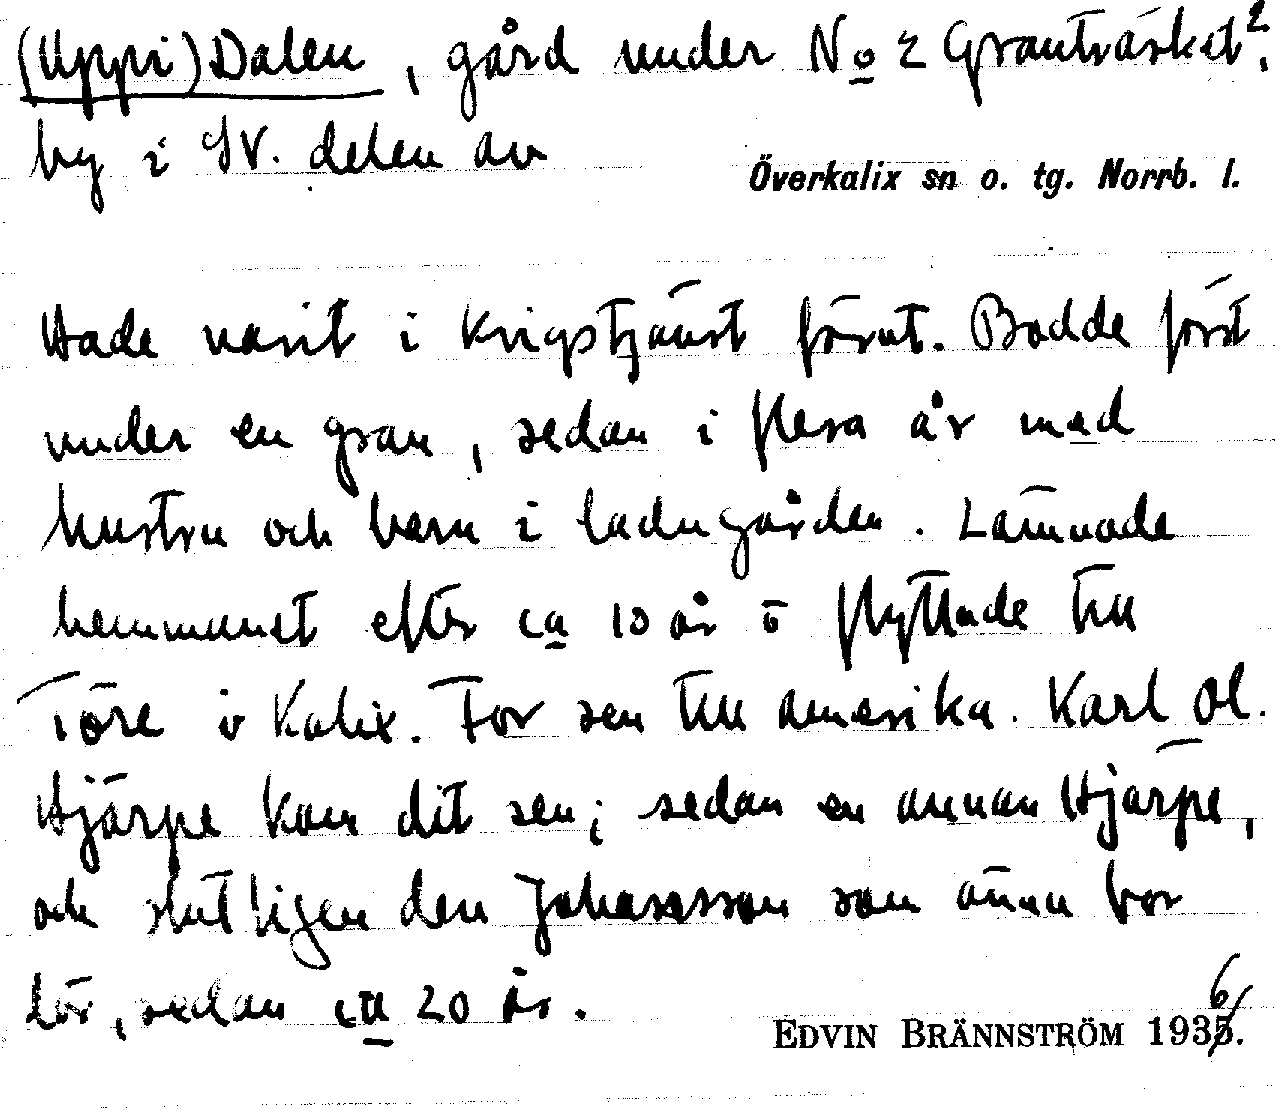 (Uppi) Dalen, gård under No 2 Granträsket²,
by i SV. delen av
Överkalix sn o. tg. Norrb. l.
Hade varit i krigstjänst förut. Bodde först
under en gran, sedan i flera år med
hustru och barn i ladugården. Lämnade
hemmanet efter ca 10 år o flyttade till
Töre i Kalix. For sen till Amerika. Karl Ol.
Hjärpe kom dit sen; sedan en annan Hjärpe,
och slutligen den Johansson som ännu bor
där, sedan ca 20 år.
6
EDVIN BRÄNNSTRÖM 1935.